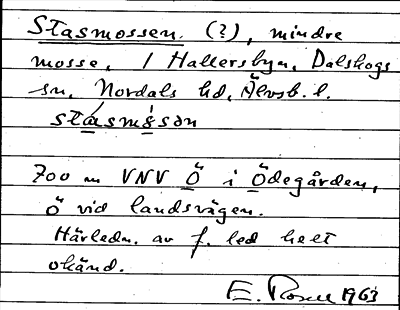 Stasmossen. (?), mindre
mosse, i Hallersbyn, Dalskogs
sn, Nordals hd, Älvsb. l.
stásmʹs̱ən
700 m VNV Ö i Ödegården,
Ö vid landsvägen.
Härledn. av f. led helt
okänd.
E. Rosell 1963